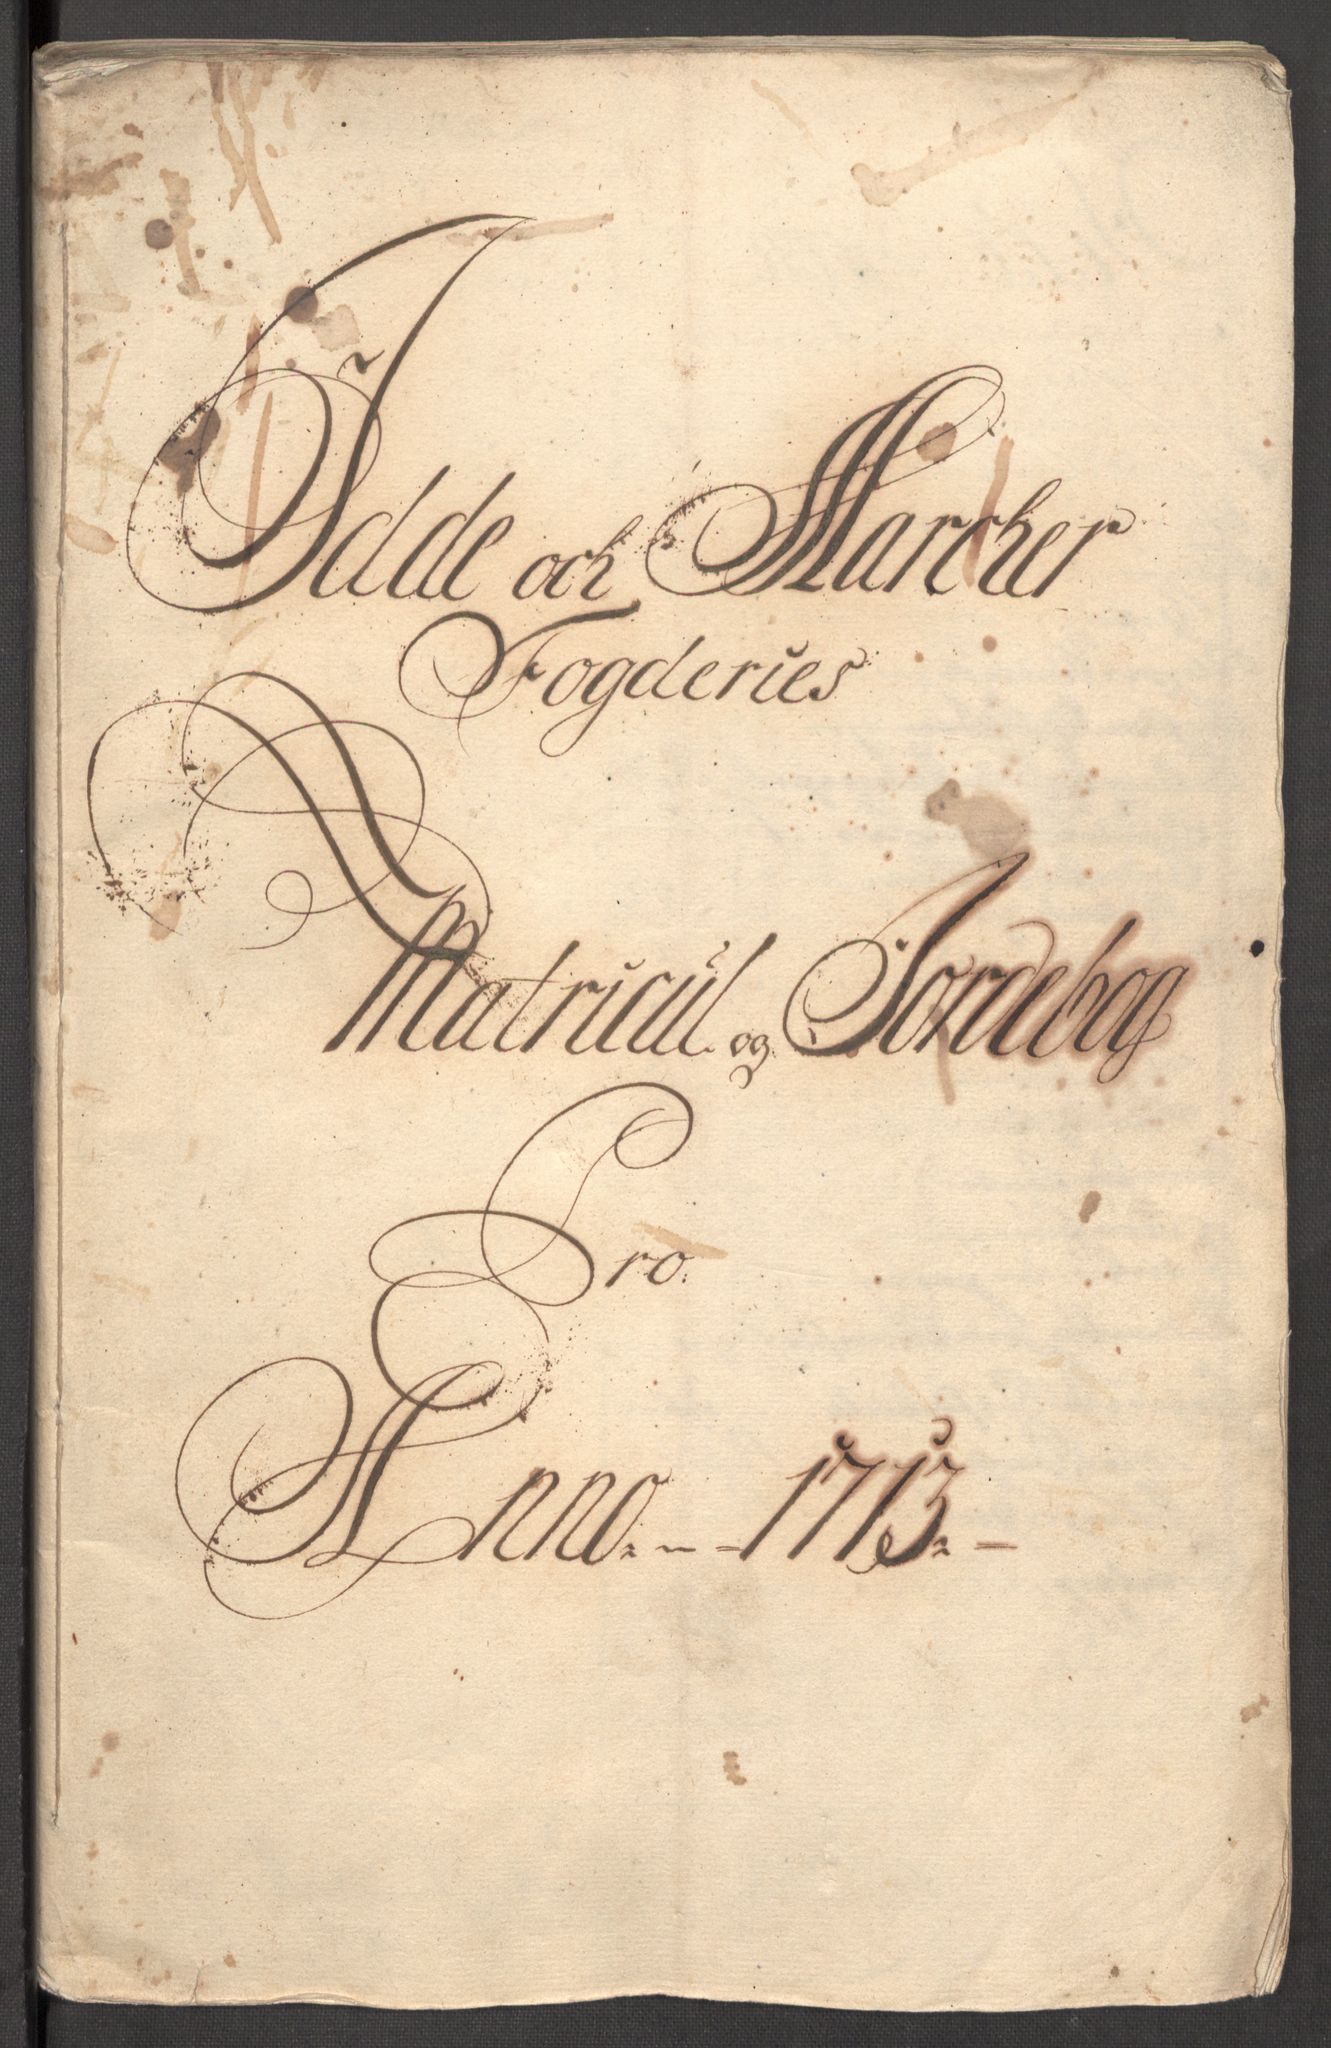 Idde och Marcker
Fogderies
Matricul og Jordebog
Pro
Anno 1713